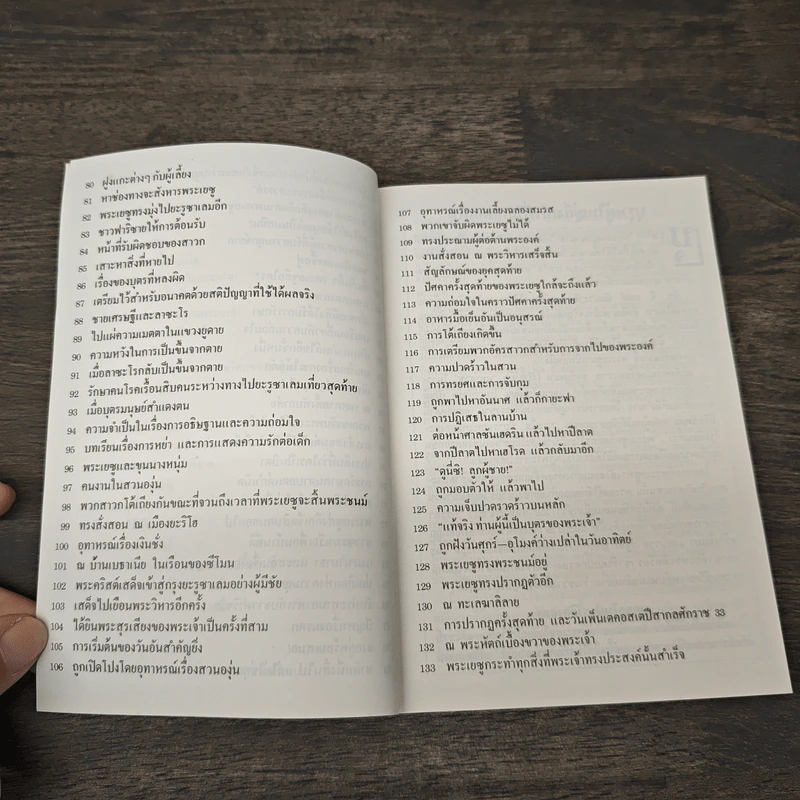 80 ฝูงแกะต่างๆ กับผู้เลี้ยง
81 หาช่องทางจะสังหารพระเยซู
82 พระเยซูทรงมุ่งไปยะรูซาเลมอีก
83 ชาวฟาริซายให้การต้อนรับ
84 หน้าที่รับผิดชอบของสาวก
85 เสาะหาสิ่งที่หายไป
86 เรื่องของบุตรที่หลงผิด
87 เตรียมไว้สำหรับอนาคตด้วยสติปัญญาที่ใช้ได้ผลจริง
88 ชายเศรษฐีและลาซะโร
89 ไปแผ่ความเมตตาในแขวงยูดาย
90 ความหวังในการเป็นขึ้นจากตาย
91 เมื่อลาซะโรกลับเป็นขึ้นจากตาย
92 รักษาคนโรคเรื้อนสิบคนระหว่างทางไปยะรูซาเลมเที่ยวสุดท้าย
93 เมื่อบุตรมนุษย์สำแดงตน
94 ความจำเป็นในเรื่องการอธิษฐานและความถ่อมใจ
95 บทเรียนเรื่องการหย่า และการแสดงความรักต่อเด็ก
96 พระเยซูและขุนนางหนุ่ม
97 คนงานในสวนองุ่น
98 พวกสาวกโต้เถียงกันขณะที่จวนถึงเวลาที่พระเยซูจะสิ้นพระชนม์
99 ทรงสั่งสอน ณ เมืองยะริโฮ
100 อุทาหรณ์เรื่องเงินชั่ง
101 ณ บ้านเบธาเนีย ในเรือนของซีโมน
102 พระคริสต์เสด็จเข้าสู่กรุงยะรูซาเลมอย่างผู้มีชัย
103 เสด็จไปเยือนพระวิหารอีกครั้ง
104 ได้ยินพระสุรเสียงของพระเจ้าเป็นครั้งที่สาม
105 การเริ่มต้นของวันอันสำคัญยิ่ง
106 ถูกเปิดโปงโดยอุทาหรณ์เรื่องสวนองุ่น
107 อุทาหรณ์เรื่องงานเลี้ยงฉลองสมรส
108 พวกเขาจับผิดพระเยซูไม่ได้
109 ทรงประณามผู้ต่อต้านพระองค์
110 งานสั่งสอน ณ พระวิหารเสร็จสิ้น
111 สัญลักษณ์ของยุคสุดท้าย
112 ปัศคาครั้งสุดท้ายของพระเยซูใกล้จะถึงแล้ว
113 ความถ่อมใจในคราวปัศคาครั้งสุดท้าย
114 อาหารมื้อเย็นอันเป็นอนุสรณ์
115 การโต้เถียงเกิดขึ้น
116 การเตรียมพวกอัครสาวกสำหรับการจากไปของพระองค์
117 ความปวดร้าวในสวน
118 การทรยศและการจับกุม
119 ถูกพาไปหาอันนาศ แล้วก็กายะฟา
120 การปฏิเสธในลานบ้าน
121 ต่อหน้าศาลซันเฮดริน แล้วไปหาปีลาต
122 จากปีลาตไปหาเฮโรด แล้วกลับมาอีก
123 “ดูนี่ซิ! ลูกผู้ชาย!”
124 ถูกมอบตัวให้ แล้วพาไป
125 ความเจ็บปวดรวดร้าวบนหลัก
126 “แท้จริง ท่านผู้นี้เป็นบุตรของพระเจ้า”
127 ถูกฝังวันศุกร์—อุโมงค์ว่างเปล่าในวันอาทิตย์
128 พระเยซูทรงพระชนม์อยู่
129 พระเยซูทรงปรากฏตัวอีก
130 ณ ทะเลฆาลิลาย
131 การปรากฏครั้งสุดท้าย และวันเพ็นเตคอสเตปีสากลศักราช 33
132 ณ พระหัตถ์เบื้องขวาของพระเจ้า
133 พระเยซูกระทำทุกสิ่งที่พระเจ้าทรงประสงค์นั้นสำเร็จ